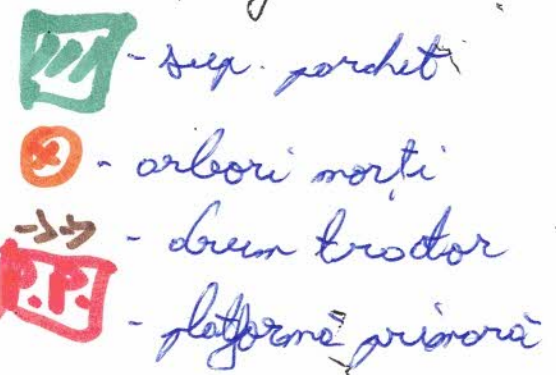 - sup. parchet
- arbori morți
- drum tractor
P.P. - platformă primară